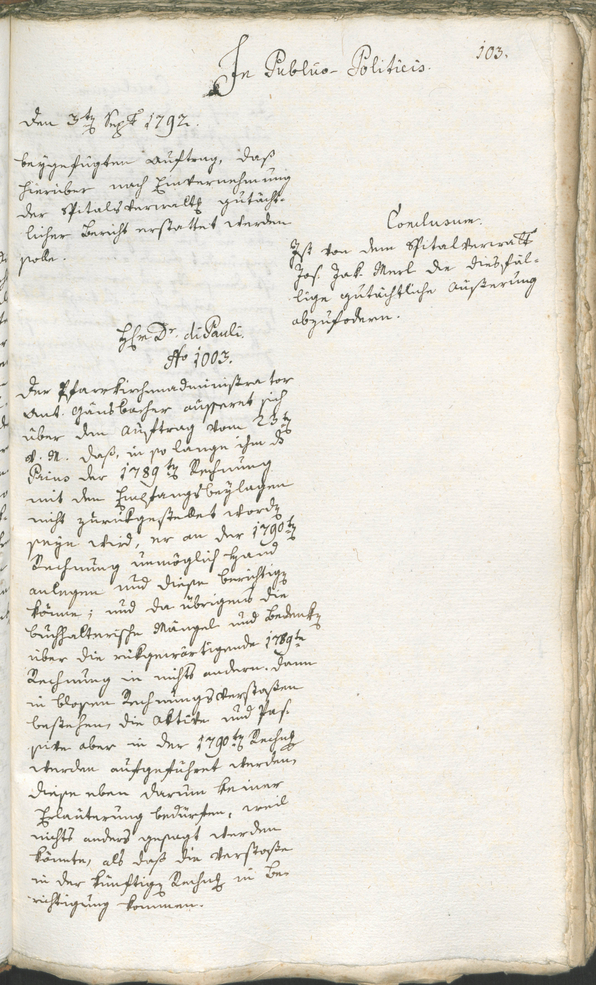 103.
In Publico-Politicis.
Den 3ten Sept 1792.
beygefügten Auftrag, daß
hierüber nach Einvernehmung
der Spitalsverwaltg gutächt-
licher Bericht erstattet werden
solle.
Conclusum.
Ist von dem Spitalverwalt
Jos. Jak. Merl die diesfäl-
lige gutächtliche Äußerung
abzufodern.
Hr. Dr. di Pauli.
No 1003.
Der Pfarrkirchenadministrator
Ant. Gänsbacher äusseret sich
über den Auftrag vom 23ten
v. M. daß, in so lange ihm das
Pare der 1789ten Rechnung
mit den Empfangsbeylagen
nicht zurükgestellet worden
seyn wird, er an der 1790ten
Rechnung unmöglich Hand
anlegen und diese berichtigen
könne; und da übrigens die
buchhalterische Mängel und Bedenken
über die rükgewärtigende 1789te
Rechnung in nichts andern, dann
in blosen Rechnungsverstoßen
bestehen, die Aktive und Pas-
sive aber in der 1790ten Rechng
werden aufgeführet werden,
diese eben darum keiner
Erläuterung bedürfen, weil
nichts anders gesagt werden
könnte, als daß die Verstoße
in der künftigen Rechng in Be-
richtigung kommen.